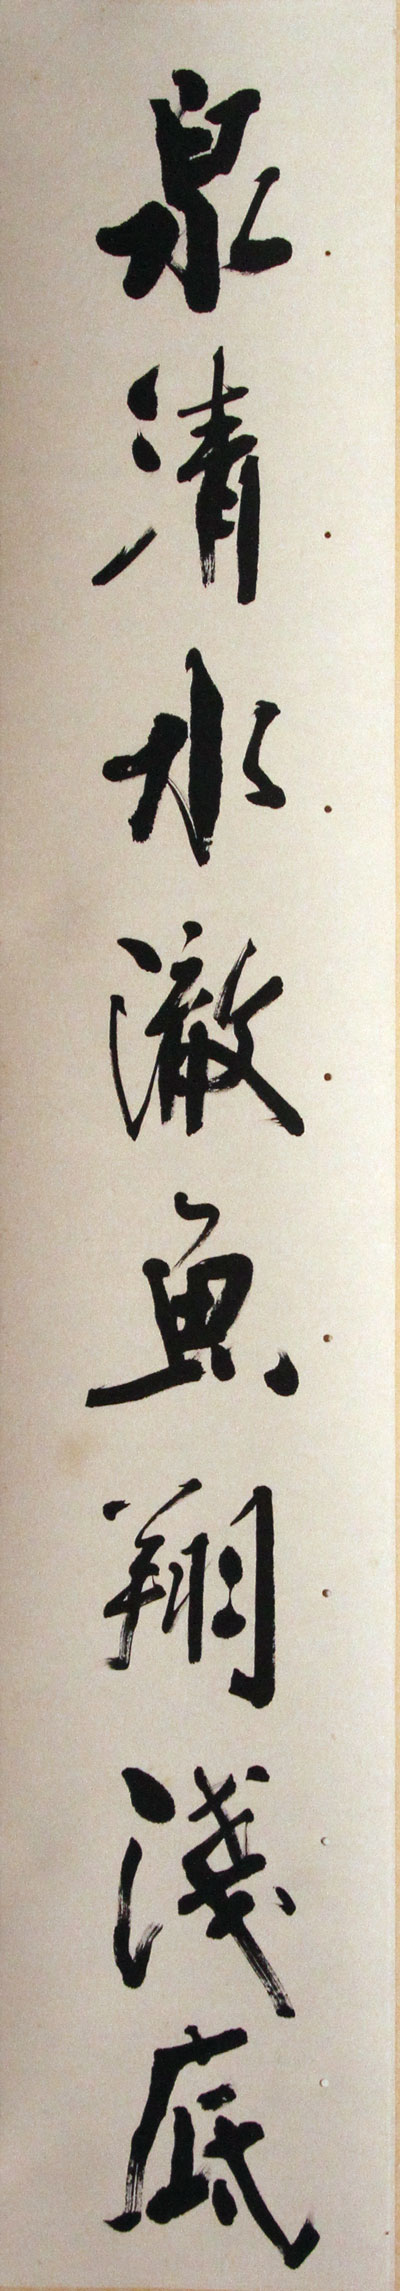 泉清水澈魚翔淺底